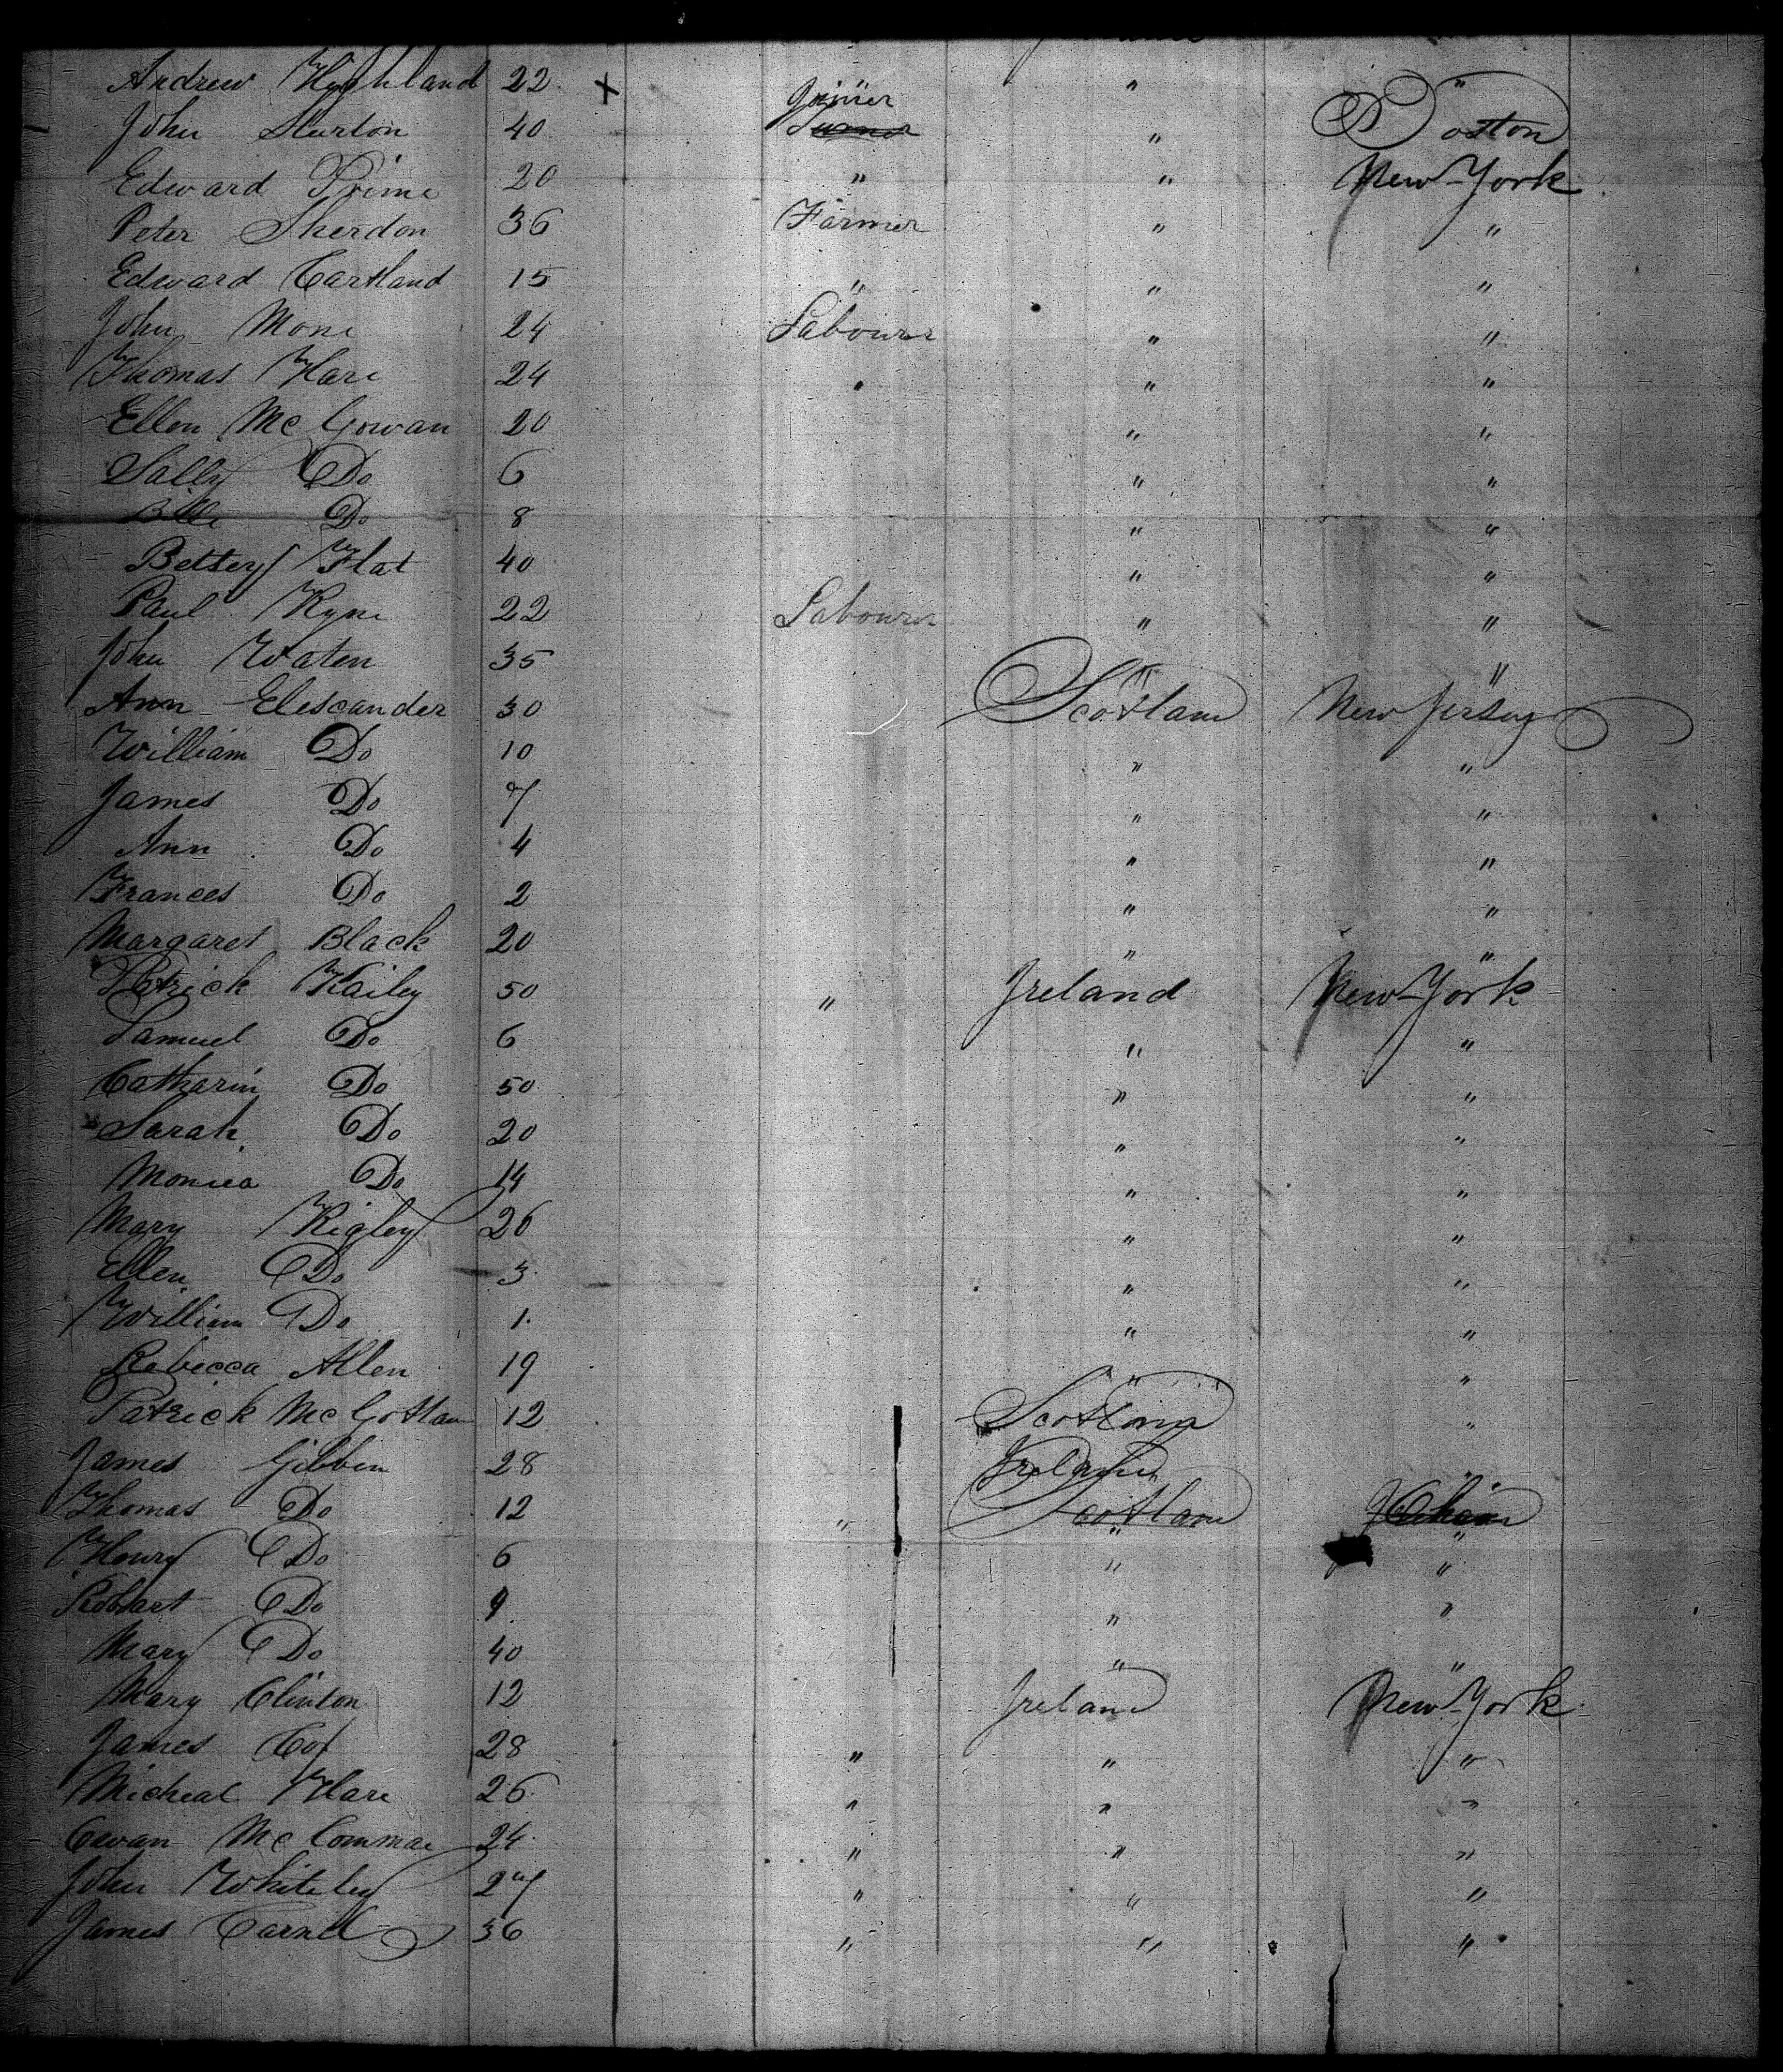 Andrew Highland 22 " "
John Sturton 40 Joiner " Boston
Edward Prime 20 " " New-York
Peter Sherdon 36 Farmer " "
Edward Cartland 15 " " "
John Mone 24 Labourer " "
Thomas Hare 24 " " "
Ellen McGowan 20 " "
Sally Do 6 " "
Do 8 " "
Betsey Flat 40 " "
Paul Kyne 22 Labourer " "
John Waten 35 " "
Ann Elescander 30 Scotland New Jersey
William Do 10 " "
James Do 7 " "
Ann Do 4 " "
Frances Do 2 " "
Margaret Black 20 " "
Patrick Kailey 50 " Ireland New-York
Samuel Do 6 " "
Catharin Do 50 " "
Sarah Do 20 " "
Monica Do 14 " "
Mary Rigley 26 " "
Ellen Do 3 " "
William Do 1 " "
Rebecca Allen 19 " "
Patrick McGotlan 12 Scotland "
James Gibben 28 Ireland "
Thomas Do 12 " Scotland
Henry Do 6 " "
Robbart Do 9 " "
Mary Do 40 " "
Mary Clinton 12 Ireland New-York
James Cox 28 " " "
Micheal Hare 26 " " "
Owan 24 " " "
John Whiteley 27 " " "
James 36 " " "